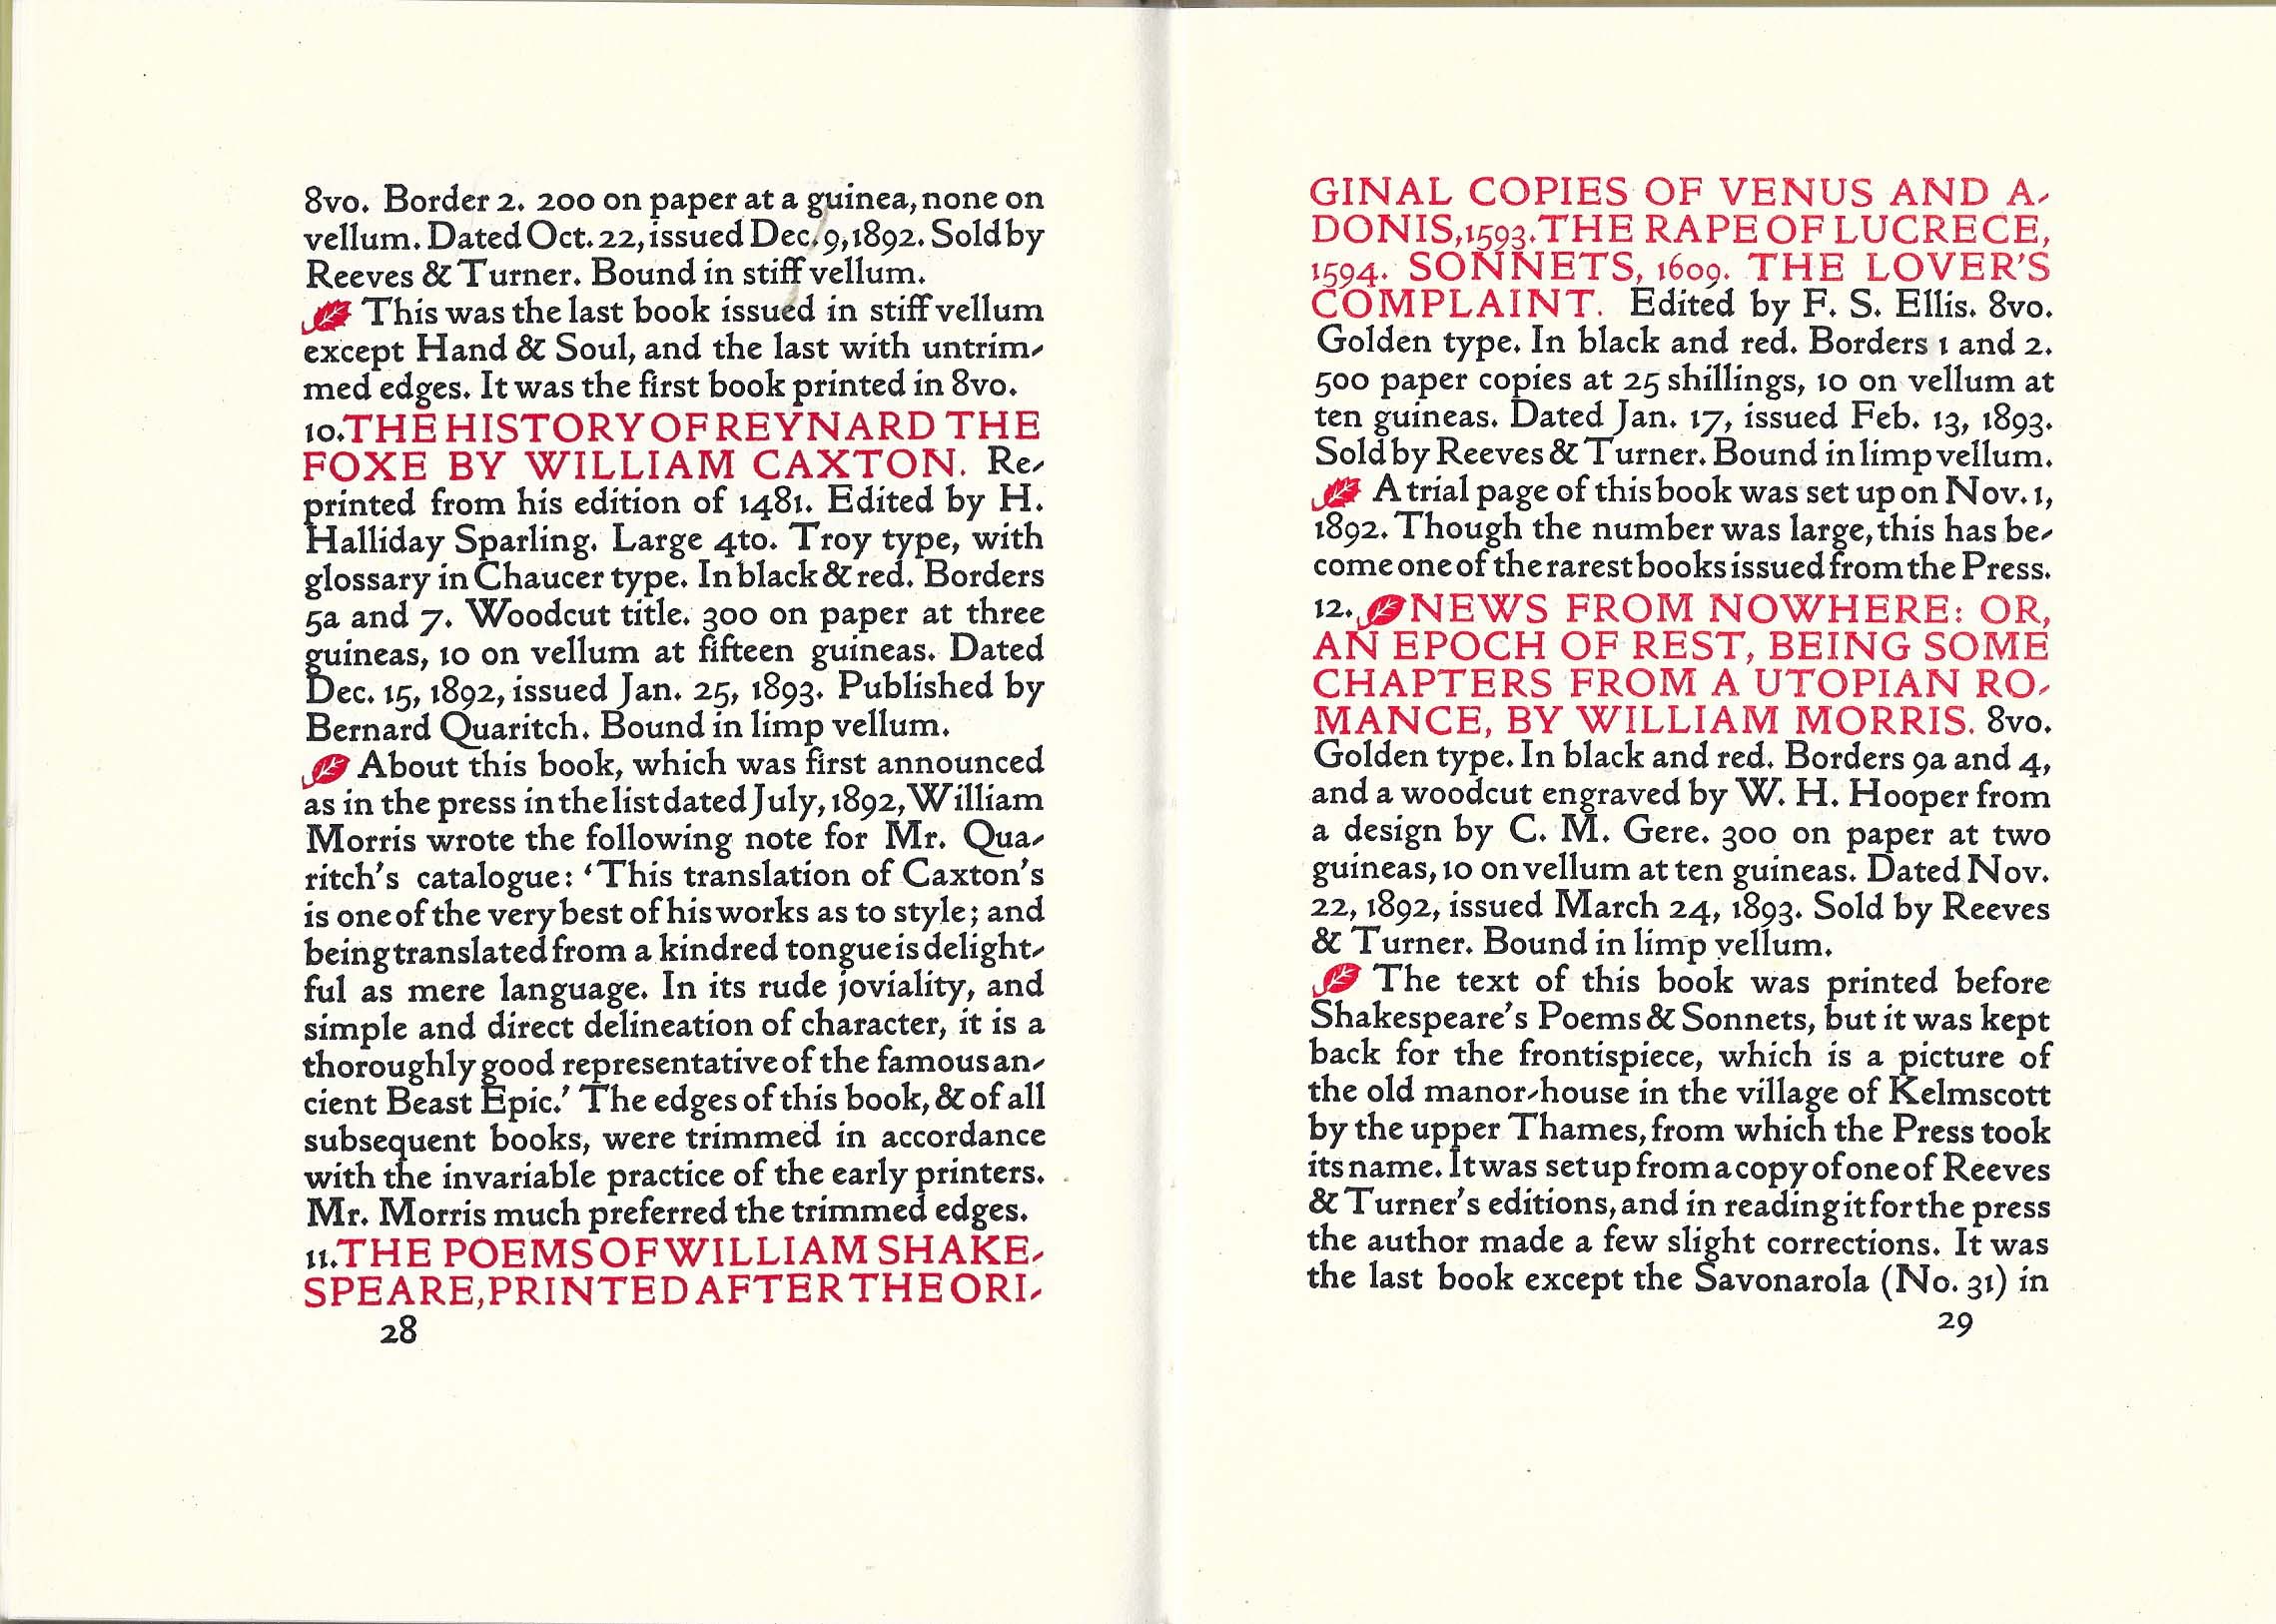 8vo. Border 2. 200 on paper at a guinea, none on
vellum. Dated Oct. 22, issued Dec. 9, 1892. Sold by
Reeves & Turner. Bound in stiff vellum.
This was the last book issued in stiff vellum
except Hand & Soul, and the last with untrim-
med edges. It was the first book printed in 8vo.
10. THE HISTORY OF REYNARD THE
FOXE BY WILLIAM CAXTON. Re-
printed from his edition of 1481. Edited by H.
Halliday Sparling. Large 4to. Troy type, with
glossary in Chaucer type. In black & red. Borders
5a and 7. Woodcut title. 300 on paper at three
guineas, 10 on vellum at fifteen guineas. Dated
Dec. 15, 1892, issued Jan. 25, 1893. Published by
Bernard Quaritch. Bound in limp vellum.
About this book, which was first announced
as in the press in the list dated July, 1892, William
Morris wrote the following note for Mr. Qua-
ritch's catalogue: 'This translation of Caxton's
is one of the very best of his works as to style; and
being translated from a kindred tongue is delight-
ful as mere language. In its rude joviality, and
simple and direct delineation of character, it is a
thoroughly good representative of the famous an-
cient Beast Epic.' The edges of this book, & of all
subsequent books, were trimmed in accordance
with the invariable practice of the early printers.
Mr. Morris much preferred the trimmed edges.
11. THE POEMS OF WILLIAM SHAKE-
SPEARE, PRINTED AFTER THE ORI-
28
GINAL COPIES OF VENUS AND A-
DONIS, 1593. THE RAPE OF LUCRECE,
1594. SONNETS, 1609. THE LOVER'S
COMPLAINT. Edited by F. S. Ellis. 8vo.
Golden type. In black and red. Borders 1 and 2.
500 paper copies at 25 shillings, 10 on vellum at
ten guineas. Dated Jan. 17, issued Feb. 13, 1893.
Sold by Reeves & Turner. Bound in limp vellum.
A trial page of this book was set up on Nov. 1,
1892. Though the number was large, this has be-
come one of the rarest books issued from the Press.
12. NEWS FROM NOWHERE: OR,
AN EPOCH OF REST, BEING SOME
CHAPTERS FROM A UTOPIAN RO-
MANCE, BY WILLIAM MORRIS. 8vo.
Golden type. In black and red. Borders 9a and 4,
and a woodcut engraved by W. H. Hooper from
a design by C. M. Gere. 300 on paper at two
guineas, 10 on vellum at ten guineas. Dated Nov.
22, 1892, issued March 24, 1893. Sold by Reeves
& Turner. Bound in limp vellum.
The text of this book was printed before
Shakespeare's Poems & Sonnets, but it was kept
back for the frontispiece, which is a picture of
the old manor-house in the village of Kelmscott
by the upper Thames, from which the Press took
its name. It was set up from a copy of one of Reeves
& Turner's editions, and in reading it for the press
the author made a few slight corrections. It was
the last book except the Savonarola (No. 31) in
29